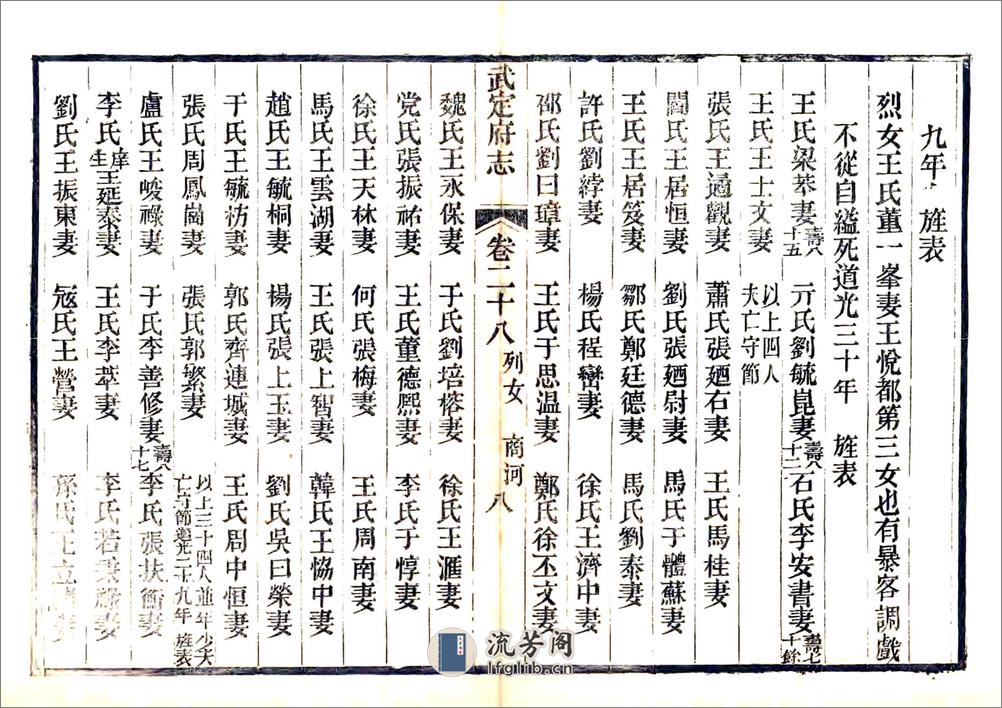 九年 旌表
烈女王氏董一峯妻王悅都第三女也有暴客調戲
不從自縊死道光三十年 旌表
王氏梁萃妻壽八十五 亓氏劉毓崑妻壽八十二 石氏李安書妻壽七十餘
王氏王士文妻 以上四人夫亡守節
張氏王邁觀妻 蕭氏張廼右妻 王氏馬桂妻
閻氏王居恒妻 劉氏張廼尉妻 馬氏于體蘇妻
王氏王居笈妻 鄒氏鄭廷德妻 馬氏劉泰妻
許氏劉綍妻 楊氏程巒妻 徐氏王濟中妻
邵氏劉曰璋妻 王氏于思温妻 鄭氏徐丕文妻
武定府志 卷二十八 列女 商河 八
魏氏王永保妻 于氏劉培榕妻 徐氏王滙妻
党氏張振祐妻 王氏董德熙妻 李氏于惇妻
徐氏王天林妻 何氏張梅妻 王氏周南妻
馬氏王雲湖妻 王氏張上智妻 韓氏王恊中妻
趙氏王毓桐妻 楊氏張上玉妻 劉氏吳曰榮妻
于氏王毓枋妻 郭氏齊連城妻 王氏周中恒妻
張氏周鳳崗妻 張氏郭繁妻 以上三十四人並年少夫亡守節道光二十九年 旌表
盧氏王畯祿妻 于氏李善修妻壽八十七 李氏張扶衡妻
李氏庠生王延泰妻 王氏李萃妻 李氏若秉祿妻
劉氏王振東妻 宼氏王營妻 孫氏王立妻
流芳阁
lfglib.cn